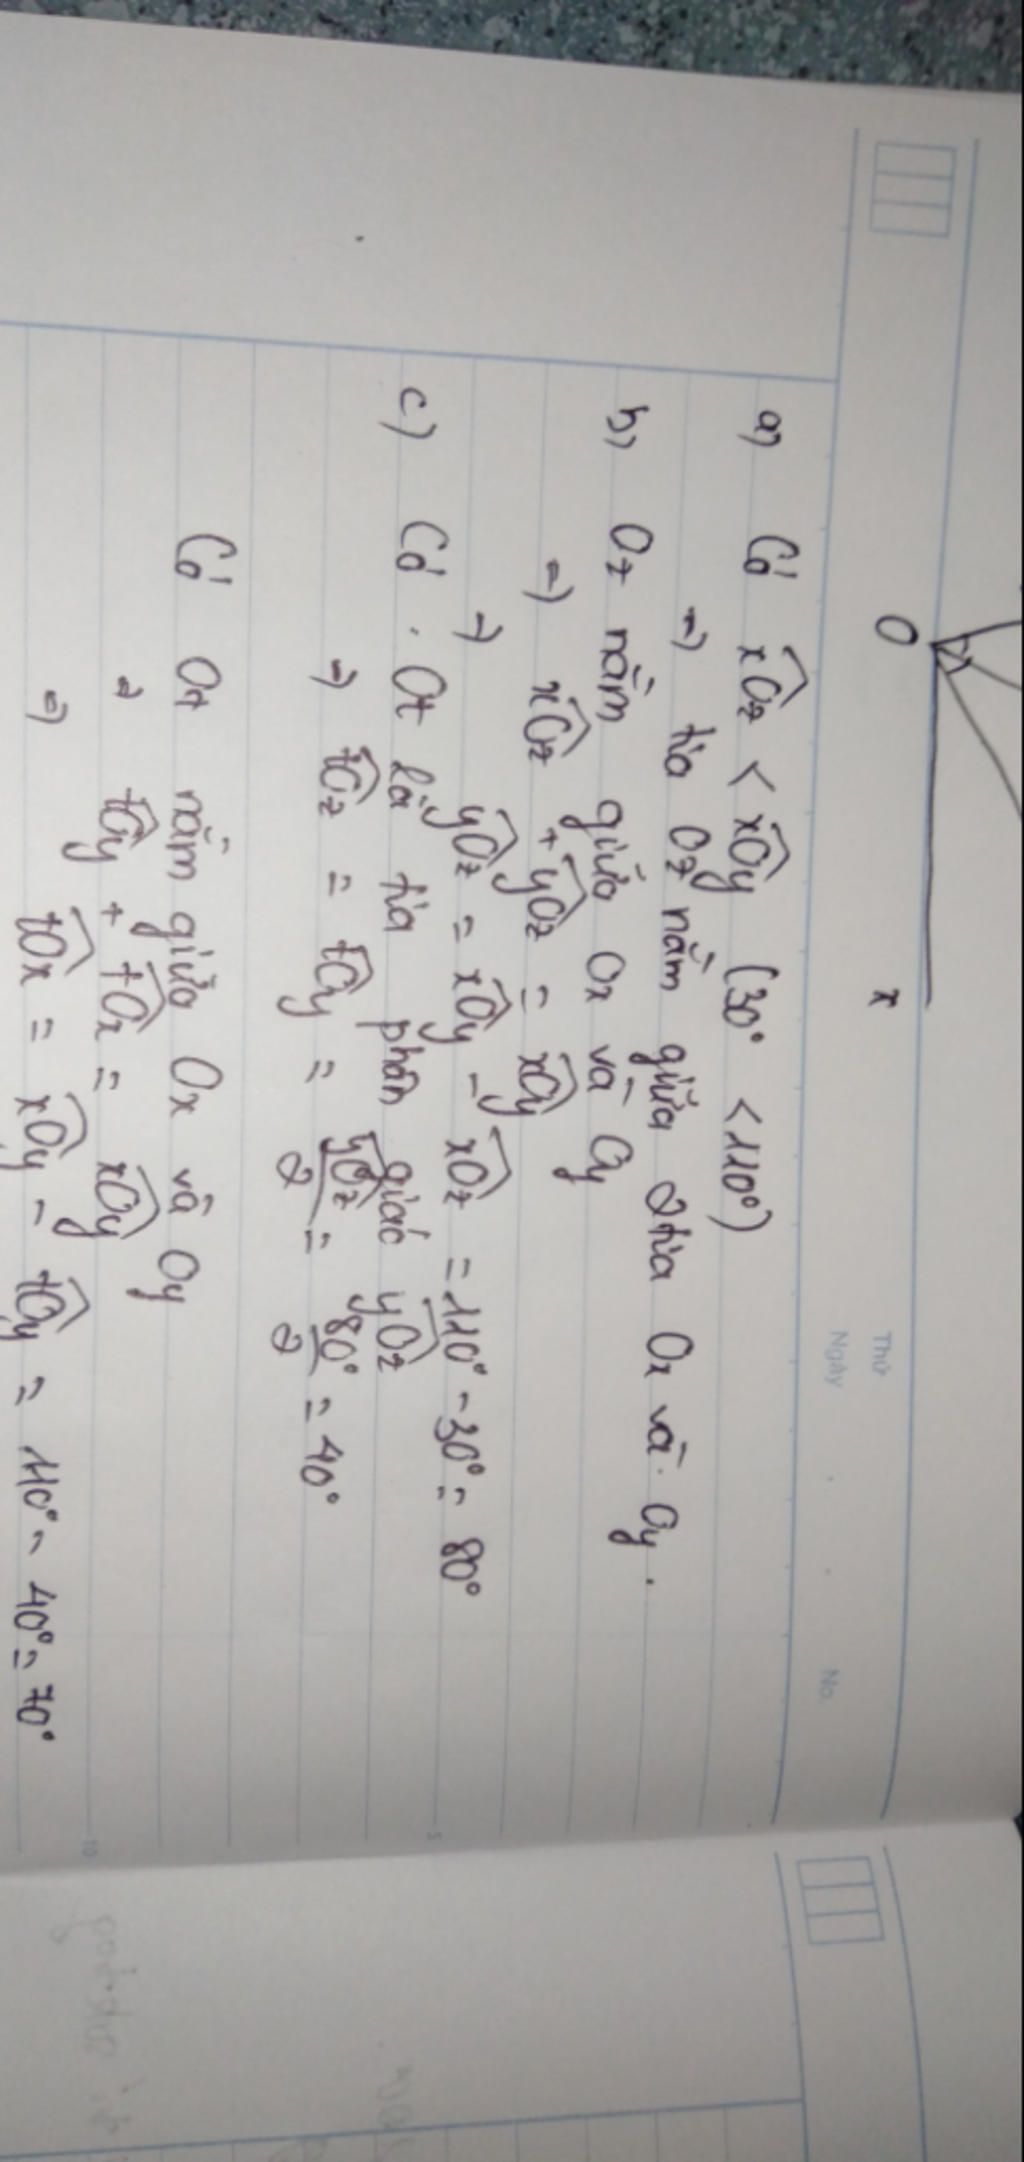 O
x
Thứ
Ngày
No.
a) Có x̂Oz < x̂Oy (30° < 110°)
=) tia Oz nằm giữa 2 tia Ox và Oy.
b) Oz nằm giữa Ox và Oy
=) x̂Oz + ŷOz = x̂Oy
=) ŷOz = x̂Oy - x̂Oz = 110° - 30° = 80°
c) Có Ot là tia phân giác ŷOz
=) t̂Oz = t̂Oy = ŷOz/2 = 80°/2 = 40°
Có Ot nằm giữa Ox và Oy
=) t̂Oy + t̂Ox = x̂Oy
=) t̂Ox = x̂Oy - t̂Oy = 110° - 40° = 70°
5
10